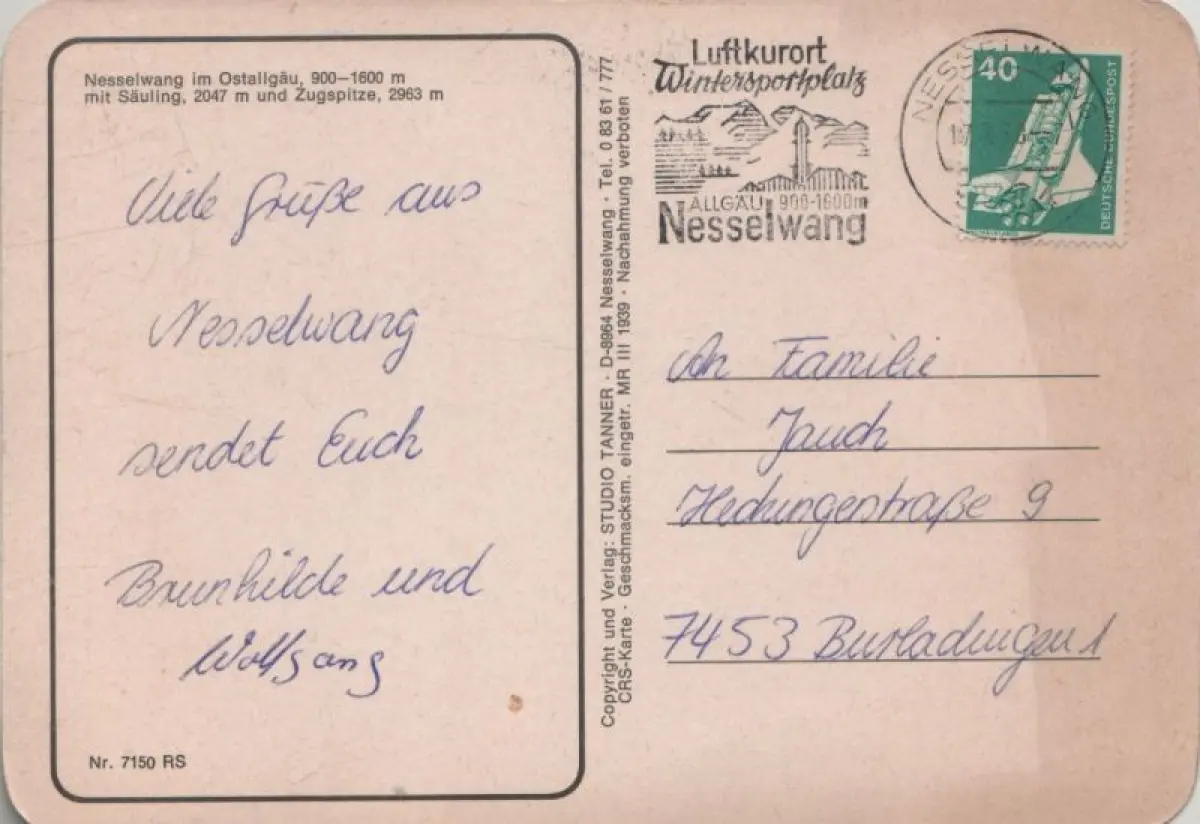 Nesselwang im Ostallgäu, 900–1600 m
mit Säuling, 2047 m und Zugspitze, 2963 m
Viele Grüße aus
Nesselwang
sendet Euch
Brunhilde und
Wolfgang
Nr. 7150 RS
Copyright und Verlag: STUDIO TANNER · D-8964 Nesselwang · Tel. 0 83 61 / 777
CRS-Karte · Geschmacksm. eingetr. MR III 1939 · Nachahmung verboten
Luftkurort
Wintersportplatz
ALLGÄU 900-1600m
Nesselwang
NESSELW
40
DEUTSCHE BUNDESPOST
An Familie
Jauch
Hechingerstraße 9
7453 Burladingen 1